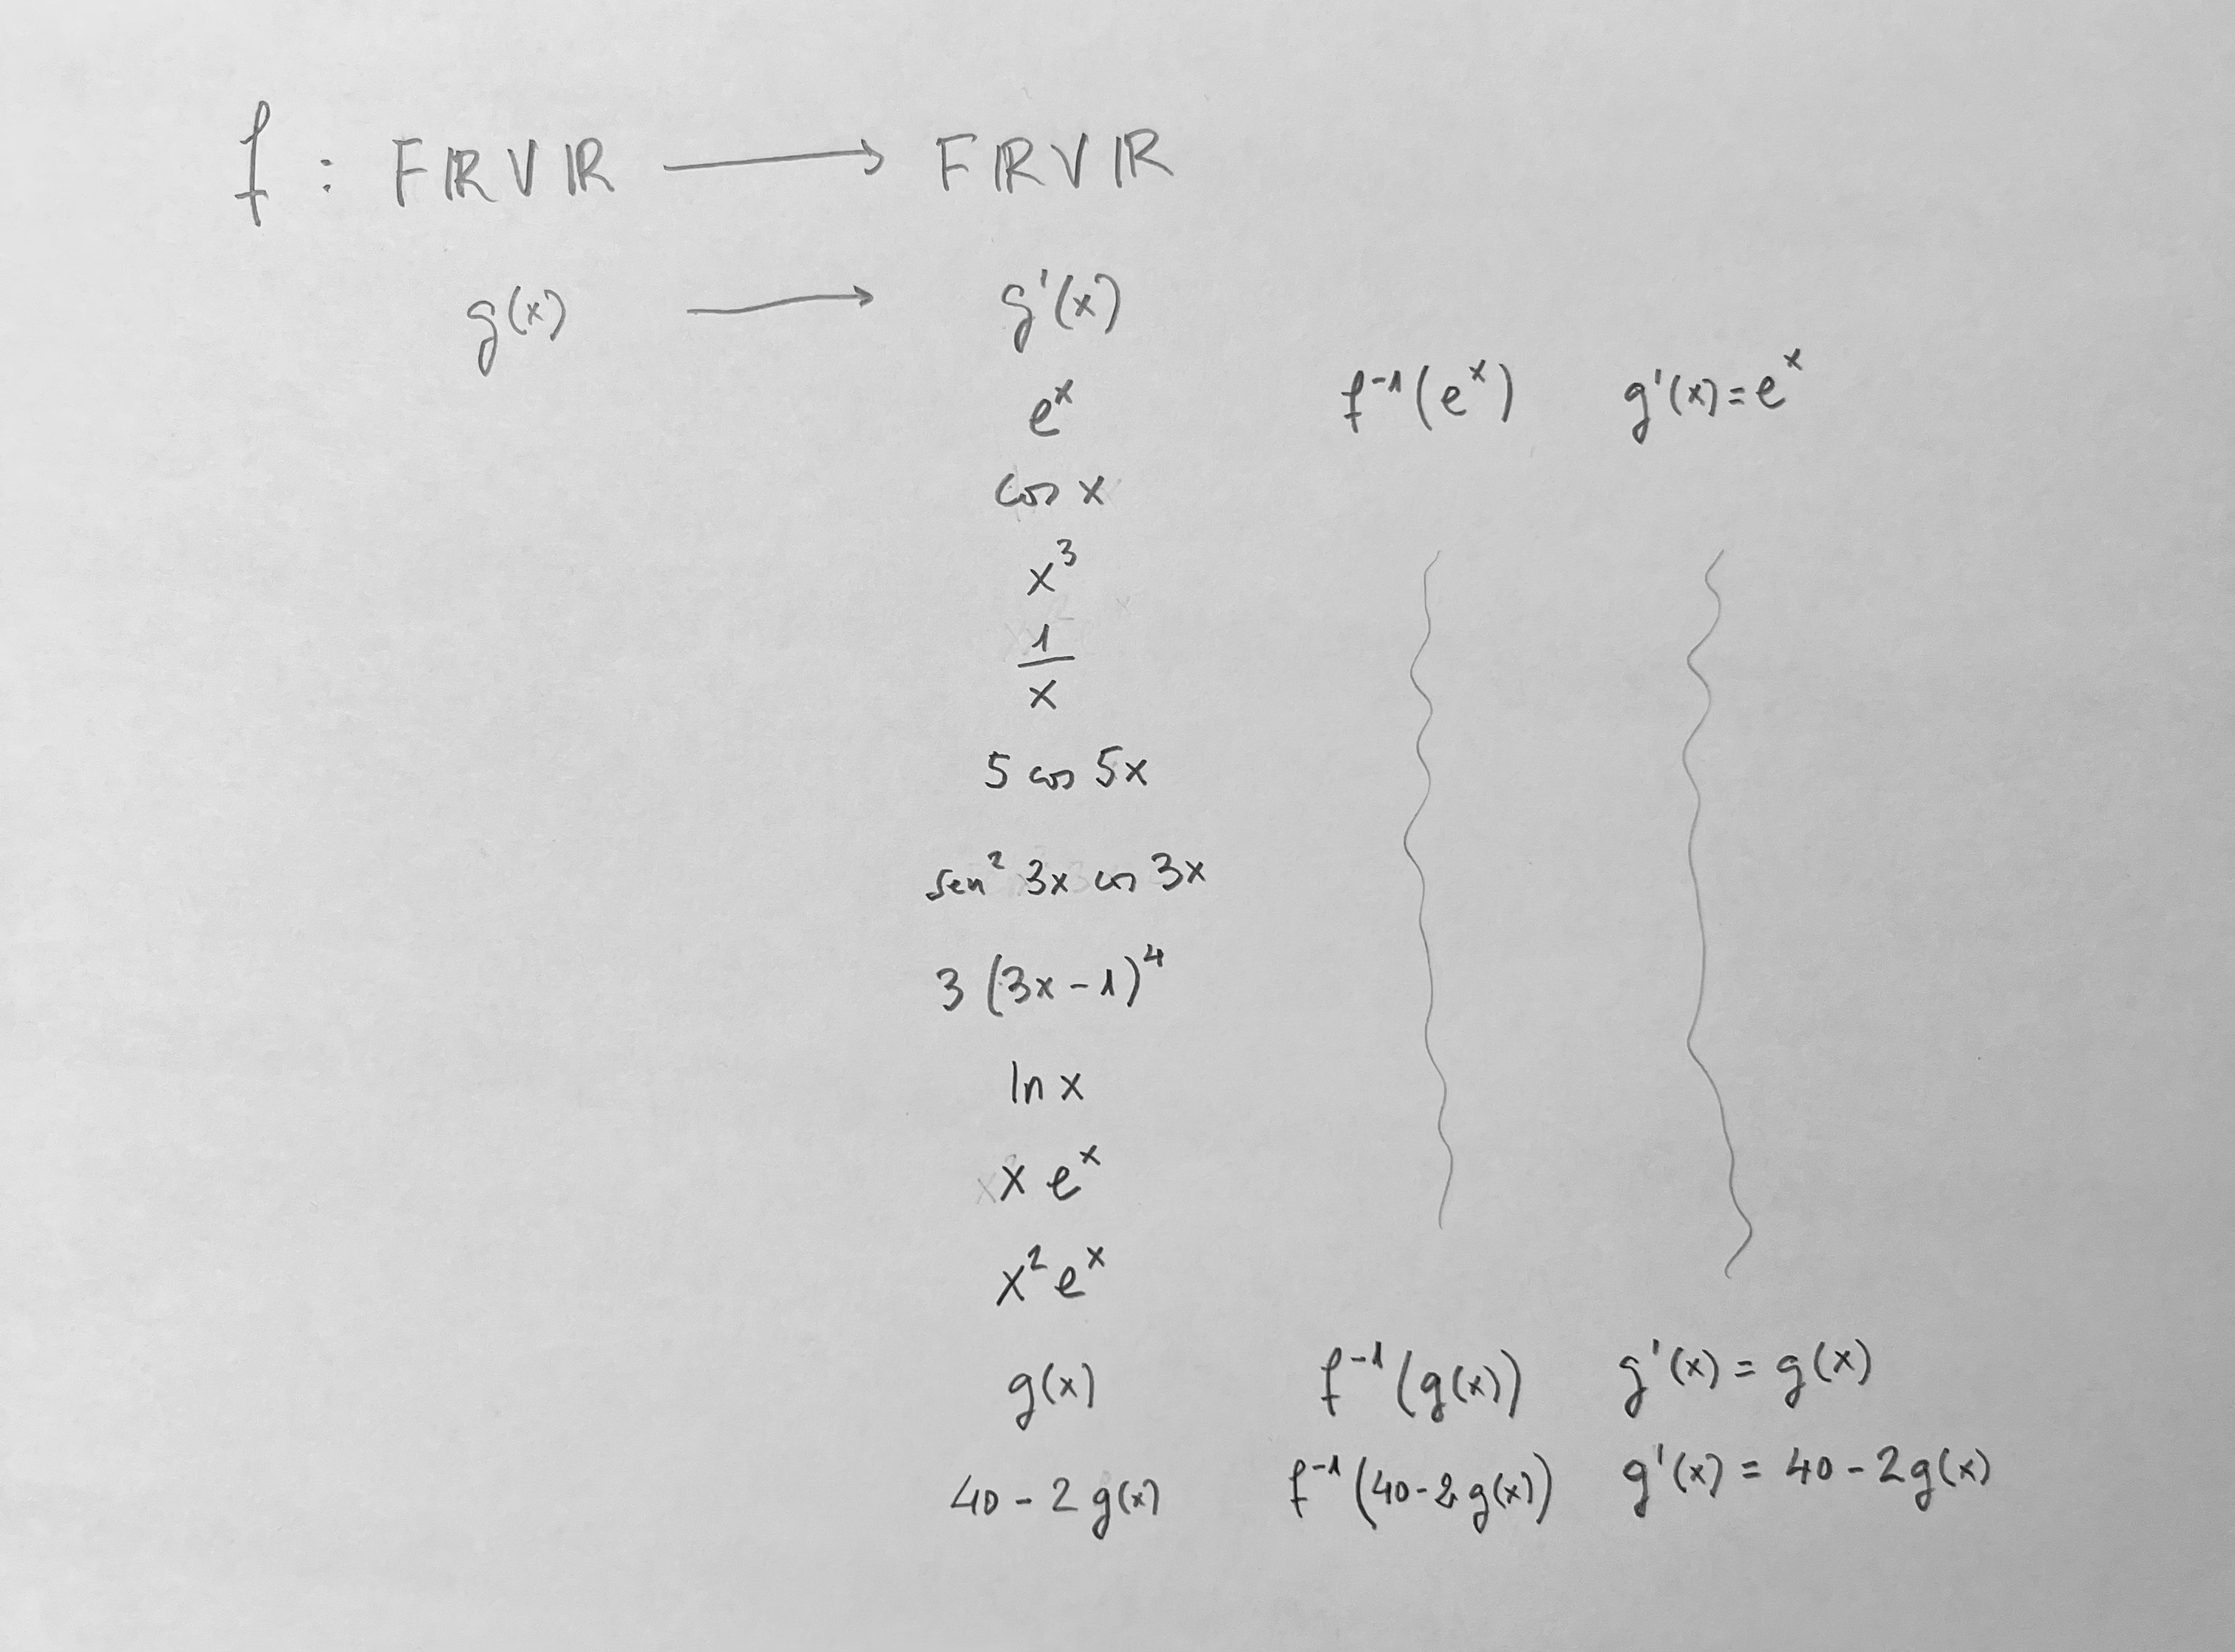 f : FℝVℝ ⟶ FℝVℝ
g(x) ⟶ g'(x)
eˣ f⁻¹(eˣ) g'(x)=eˣ
cos x
x³
1/x
5 cos 5x
sen² 3x cos 3x
3 (3x-1)⁴
ln x
x eˣ
x² eˣ
g(x) f⁻¹(g(x)) g'(x) = g(x)
40-2 g(x) f⁻¹(40-2g(x)) g'(x) = 40-2g(x)